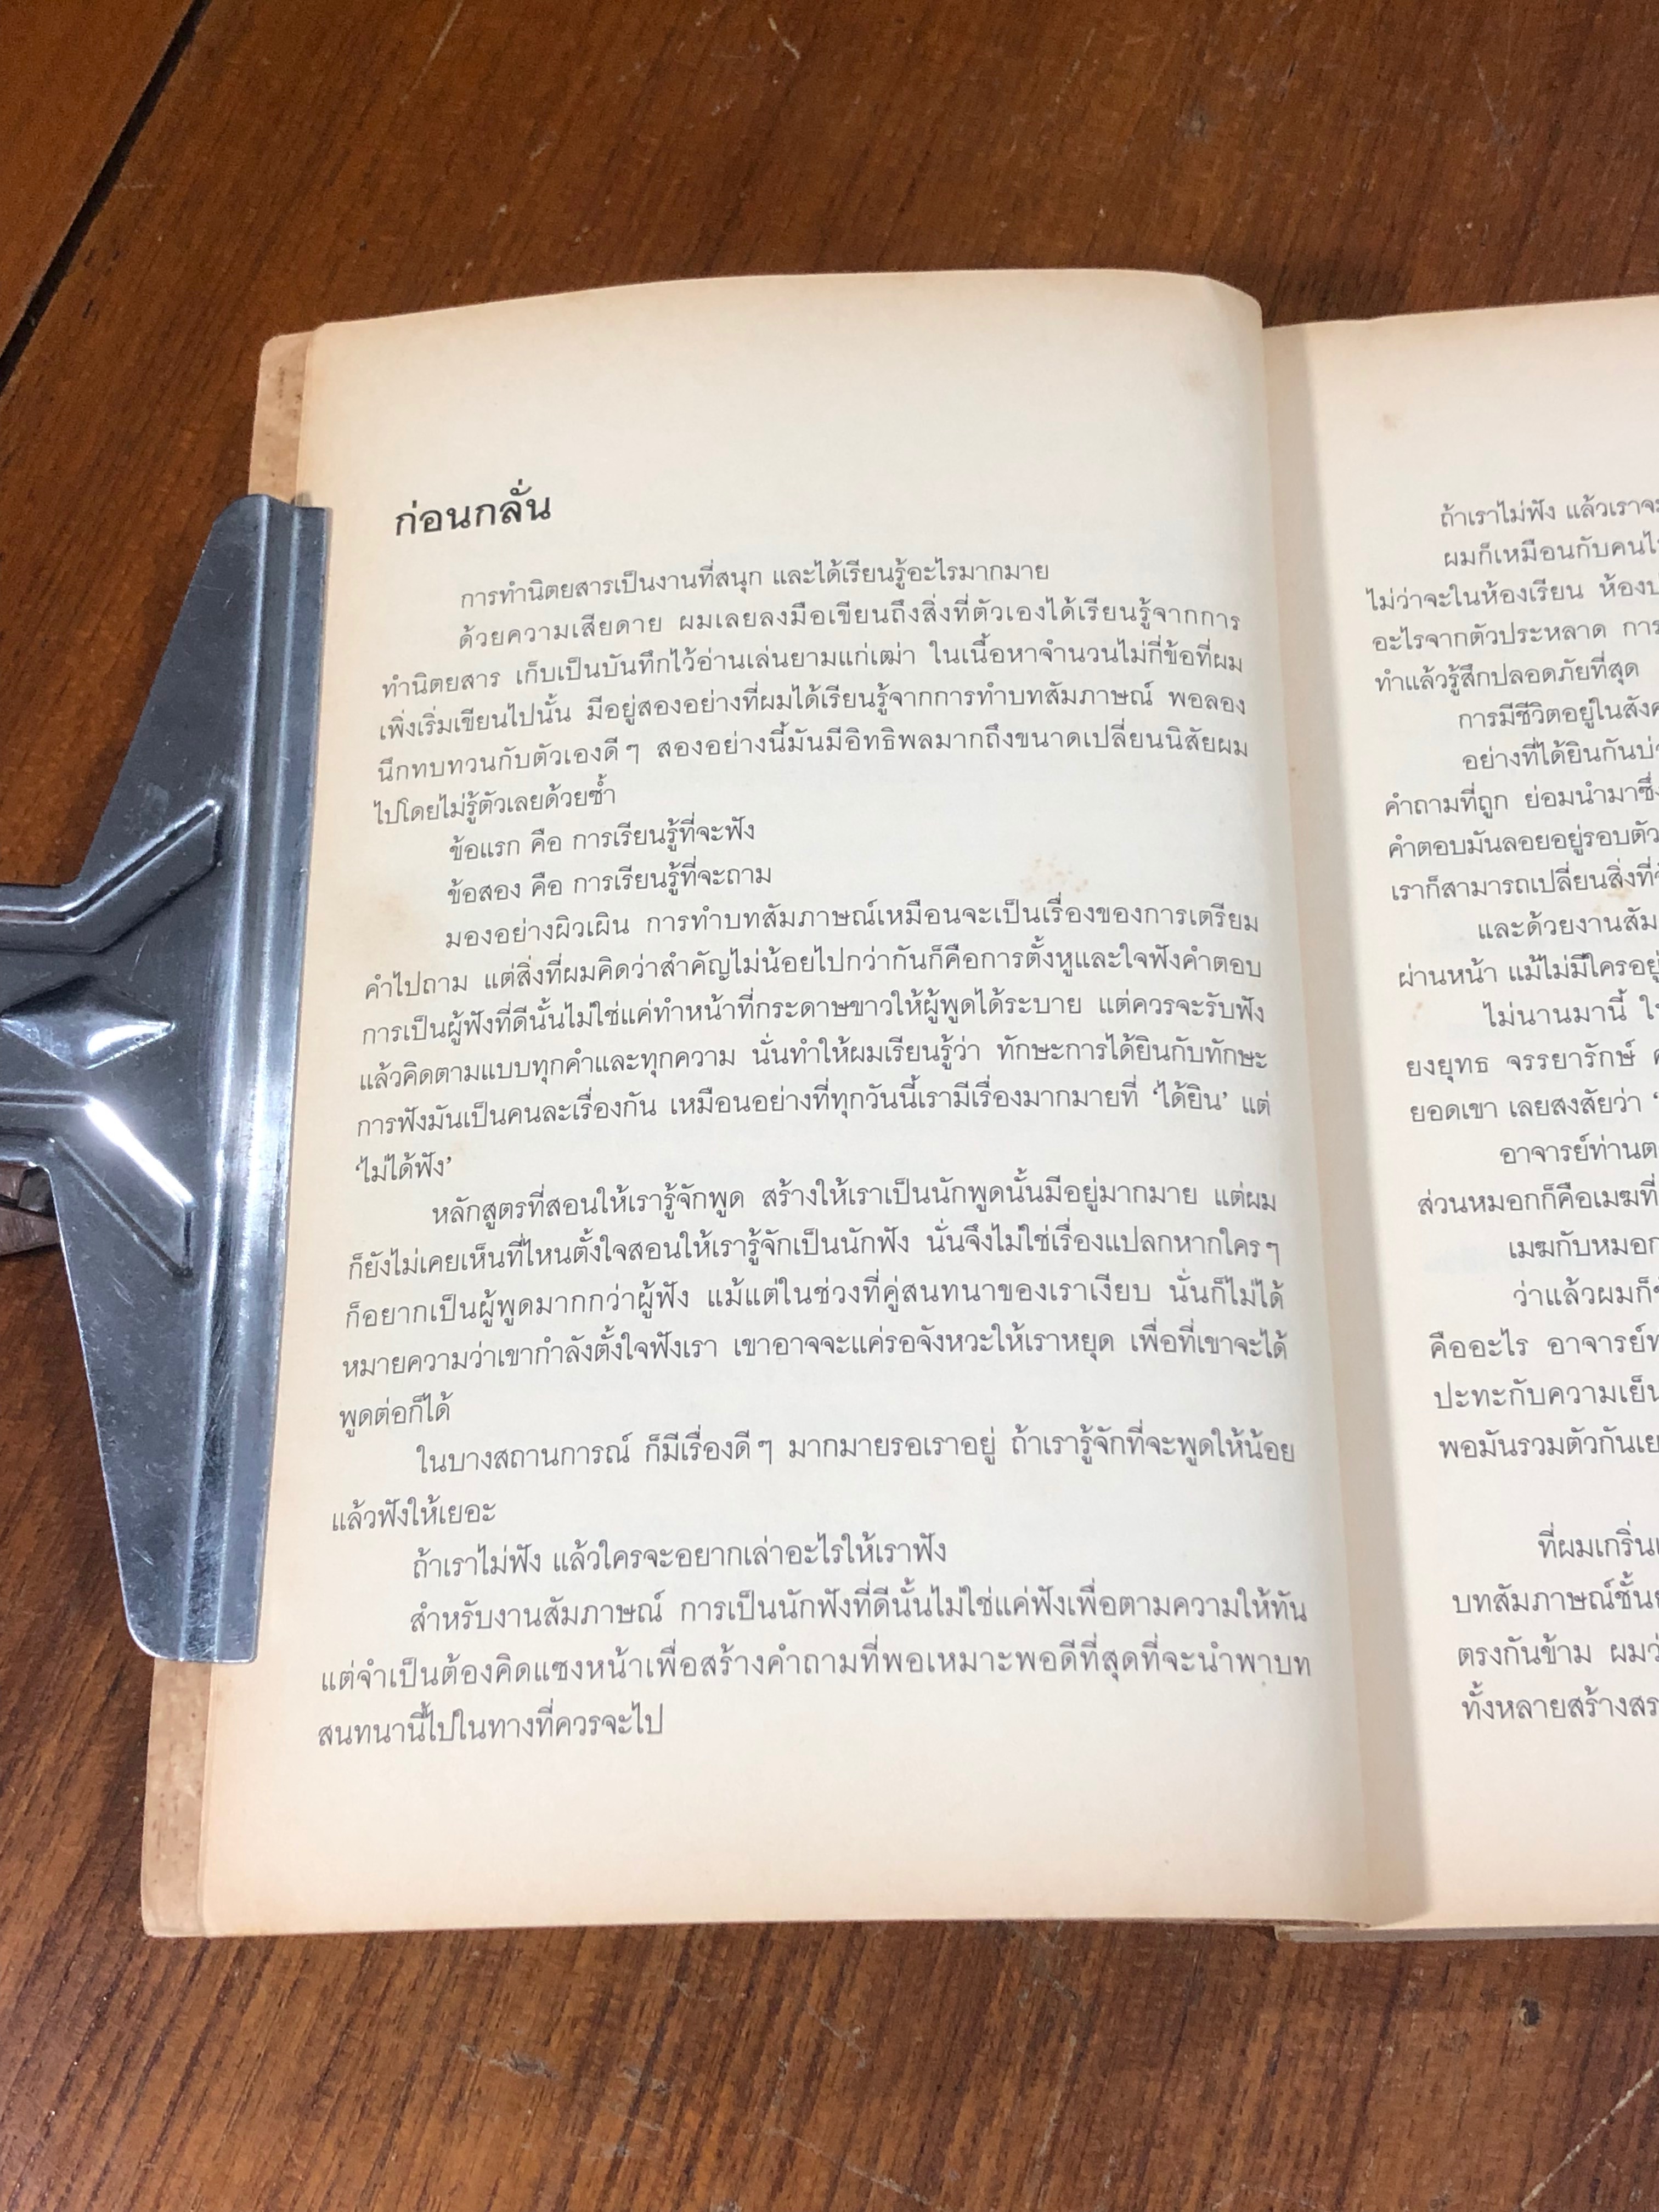 ก่อนกลั่น
การทำนิตยสารเป็นงานที่สนุก และได้เรียนรู้อะไรมากมาย
ด้วยความเสียดาย ผมเลยลงมือเขียนถึงสิ่งที่ตัวเองได้เรียนรู้จากการ
ทำนิตยสาร เก็บเป็นบันทึกไว้อ่านเล่นยามแก่เฒ่า ในเนื้อหาจำนวนไม่กี่ข้อที่ผม
เพิ่งเริ่มเขียนไปนั้น มีอยู่สองอย่างที่ผมได้เรียนรู้จากการทำบทสัมภาษณ์ พอลอง
นึกทบทวนกับตัวเองดีๆ สองอย่างนี้มันมีอิทธิพลมากถึงขนาดเปลี่ยนนิสัยผม
ไปโดยไม่รู้ตัวเลยด้วยซ้ำ
ข้อแรก คือ การเรียนรู้ที่จะฟัง
ข้อสอง คือ การเรียนรู้ที่จะถาม
มองอย่างผิวเผิน การทำบทสัมภาษณ์เหมือนจะเป็นเรื่องของการเตรียม
คำไปถาม แต่สิ่งที่ผมคิดว่าสำคัญไม่น้อยไปกว่ากันก็คือการตั้งหูและใจฟังคำตอบ
การเป็นผู้ฟังที่ดีนั้นไม่ใช่แค่ทำหน้าที่กระดาษขาวให้ผู้พูดได้ระบาย แต่ควรจะรับฟัง
แล้วคิดตามแบบทุกคำและทุกความ นั่นทำให้ผมเรียนรู้ว่า ทักษะการได้ยินกับทักษะ
การฟังมันเป็นคนละเรื่องกัน เหมือนอย่างที่ทุกวันนี้เรามีเรื่องมากมายที่ ‘ได้ยิน’ แต่
‘ไม่ได้ฟัง’
หลักสูตรที่สอนให้เรารู้จักพูด สร้างให้เราเป็นนักพูดนั้นมีอยู่มากมาย แต่ผม
ก็ยังไม่เคยเห็นที่ไหนตั้งใจสอนให้เรารู้จักเป็นนักฟัง นั่นจึงไม่ใช่เรื่องแปลกหากใครๆ
ก็อยากเป็นผู้พูดมากกว่าผู้ฟัง แม้แต่ในช่วงที่คู่สนทนาของเราเงียบ นั่นก็ไม่ได้
หมายความว่าเขากำลังตั้งใจฟังเรา เขาอาจจะแค่รอจังหวะให้เราหยุด เพื่อที่เขาจะได้
พูดต่อก็ได้
ในบางสถานการณ์ ก็มีเรื่องดีๆ มากมายรอเราอยู่ ถ้าเรารู้จักที่จะพูดให้น้อย
แล้วฟังให้เยอะ
ถ้าเราไม่ฟัง แล้วใครจะอยากเล่าอะไรให้เราฟัง
สำหรับงานสัมภาษณ์ การเป็นนักฟังที่ดีนั้นไม่ใช่แค่ฟังเพื่อตามความให้ทัน
แต่จำเป็นต้องคิดแซงหน้าเพื่อสร้างคำถามที่พอเหมาะพอดีที่สุดที่จะนำพาบท
สนทนานี้ไปในทางที่ควรจะไป
ถ้าเราไม่ฟัง แล้วเราจะ
ผมก็เหมือนกับคน
ไม่ว่าจะในห้องเรียน
อะไรจากตัวประหลาด การ
ทำแล้วรู้สึกปลอดภัยที่สุด
การมีชีวิตอยู่ใน
อย่างที่ได้ยินกัน
คำถามที่ถูก ย่อมนำมาซึ่ง
คำตอบมันลอยอยู่รอบตัว
เราก็สามารถเปลี่ยนสิ่งที่
และด้วยงาน
ผ่านหน้า แม้ไม่มีใครอยู่
ไม่นานมานี้
ยงยุทธ จรรยารักษ์
ยอดเขา เลยสงสัยว่า
อาจารย์ท่าน
ส่วนหมอกก็คือเมฆที่
เมฆกับหมอก
ว่าแล้วผมก็
คืออะไร
ปะทะกับความเย็น
พอมันรวมตัวกัน
ที่ผมเกริ่น
บทสัมภาษณ์
ตรงกันข้าม
ทั้งหลาย